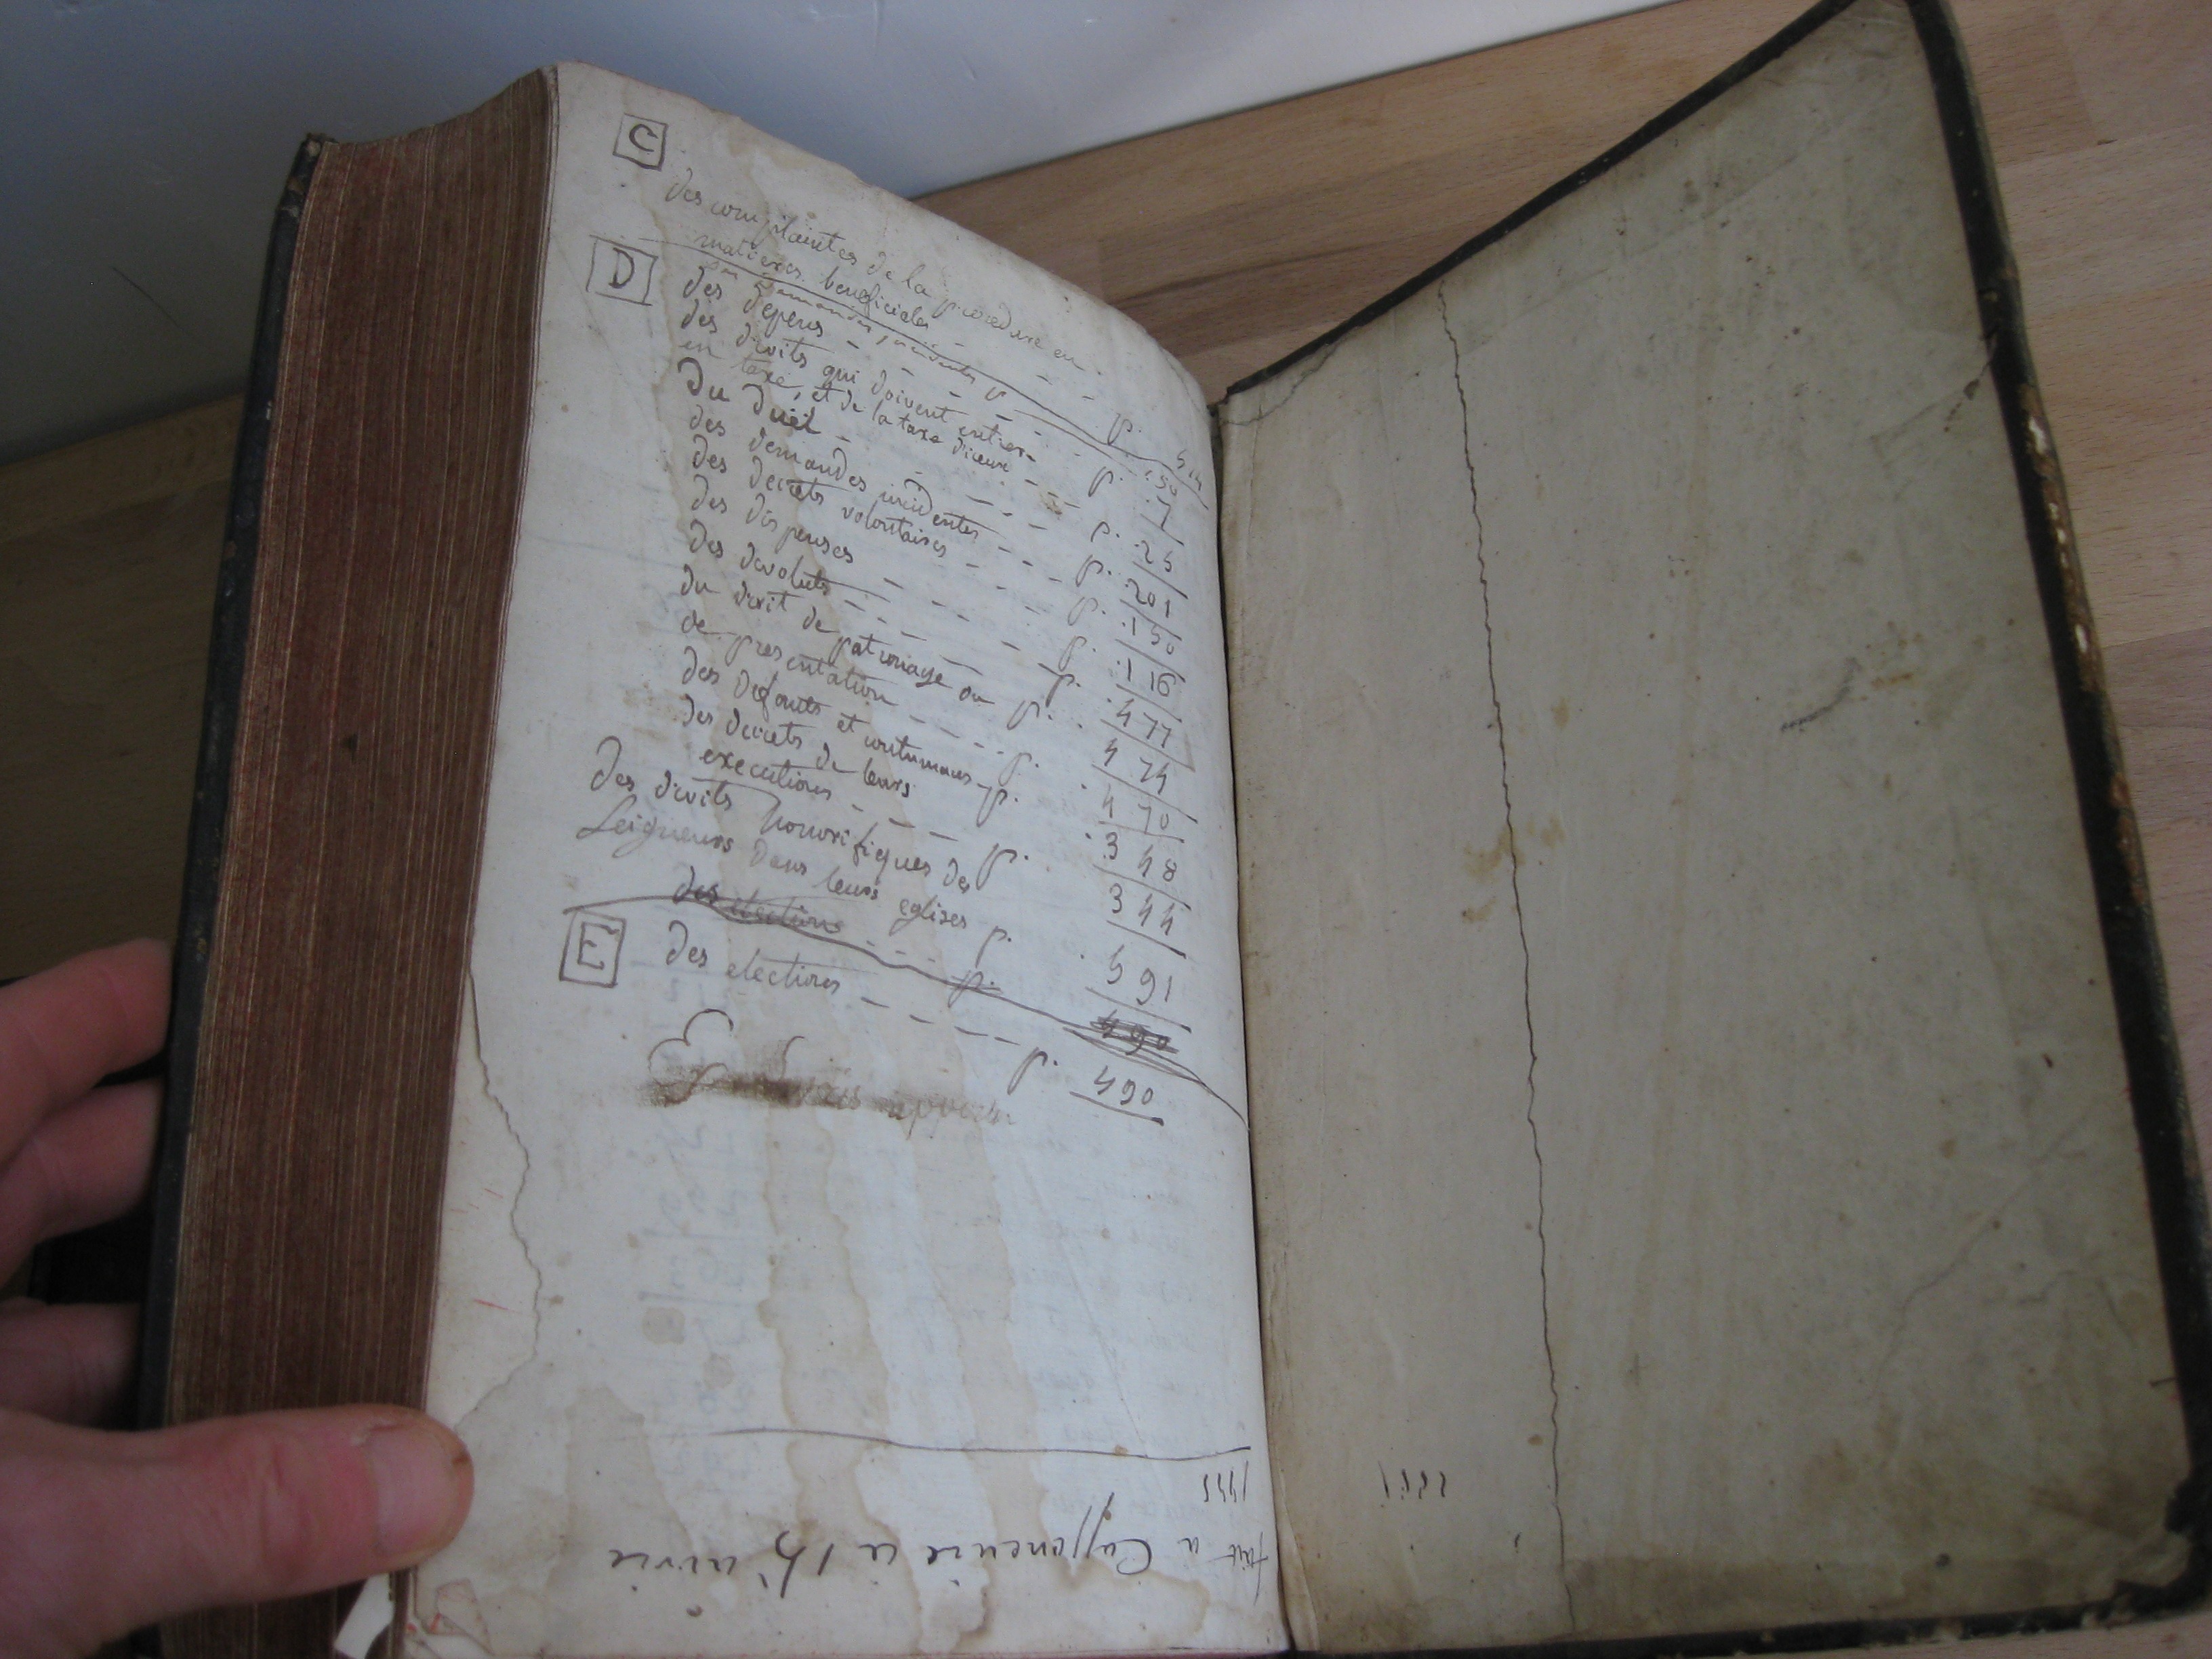 C
des complaintes de la procedure en
matieres beneficiales - - - p. 514
D
des demandes incidentes p. 150
des depens - - - - - p. 7
des droits qui doivent entrer
en taxe, et de la taxe d'iceux - - - p. 25
Du duël - - - - - p. 201
des demandes incidentes - - - p. 150
des decrets volontaires - - - p. 116
des dispenses - - - - - p. 477
des devoluts - - - - - p. 474
du droit de patronage ou
de presentation - - - - p. 470
des defauts et contumaces - p. 348
des decrets de leurs
executions - - - - p. 344
Des droits honorifiques des
Seigneurs dans leurs eglises p. 591
des elections - - - p. 490
E
des elections - - - - - p. 490
fait a ce 15 avril